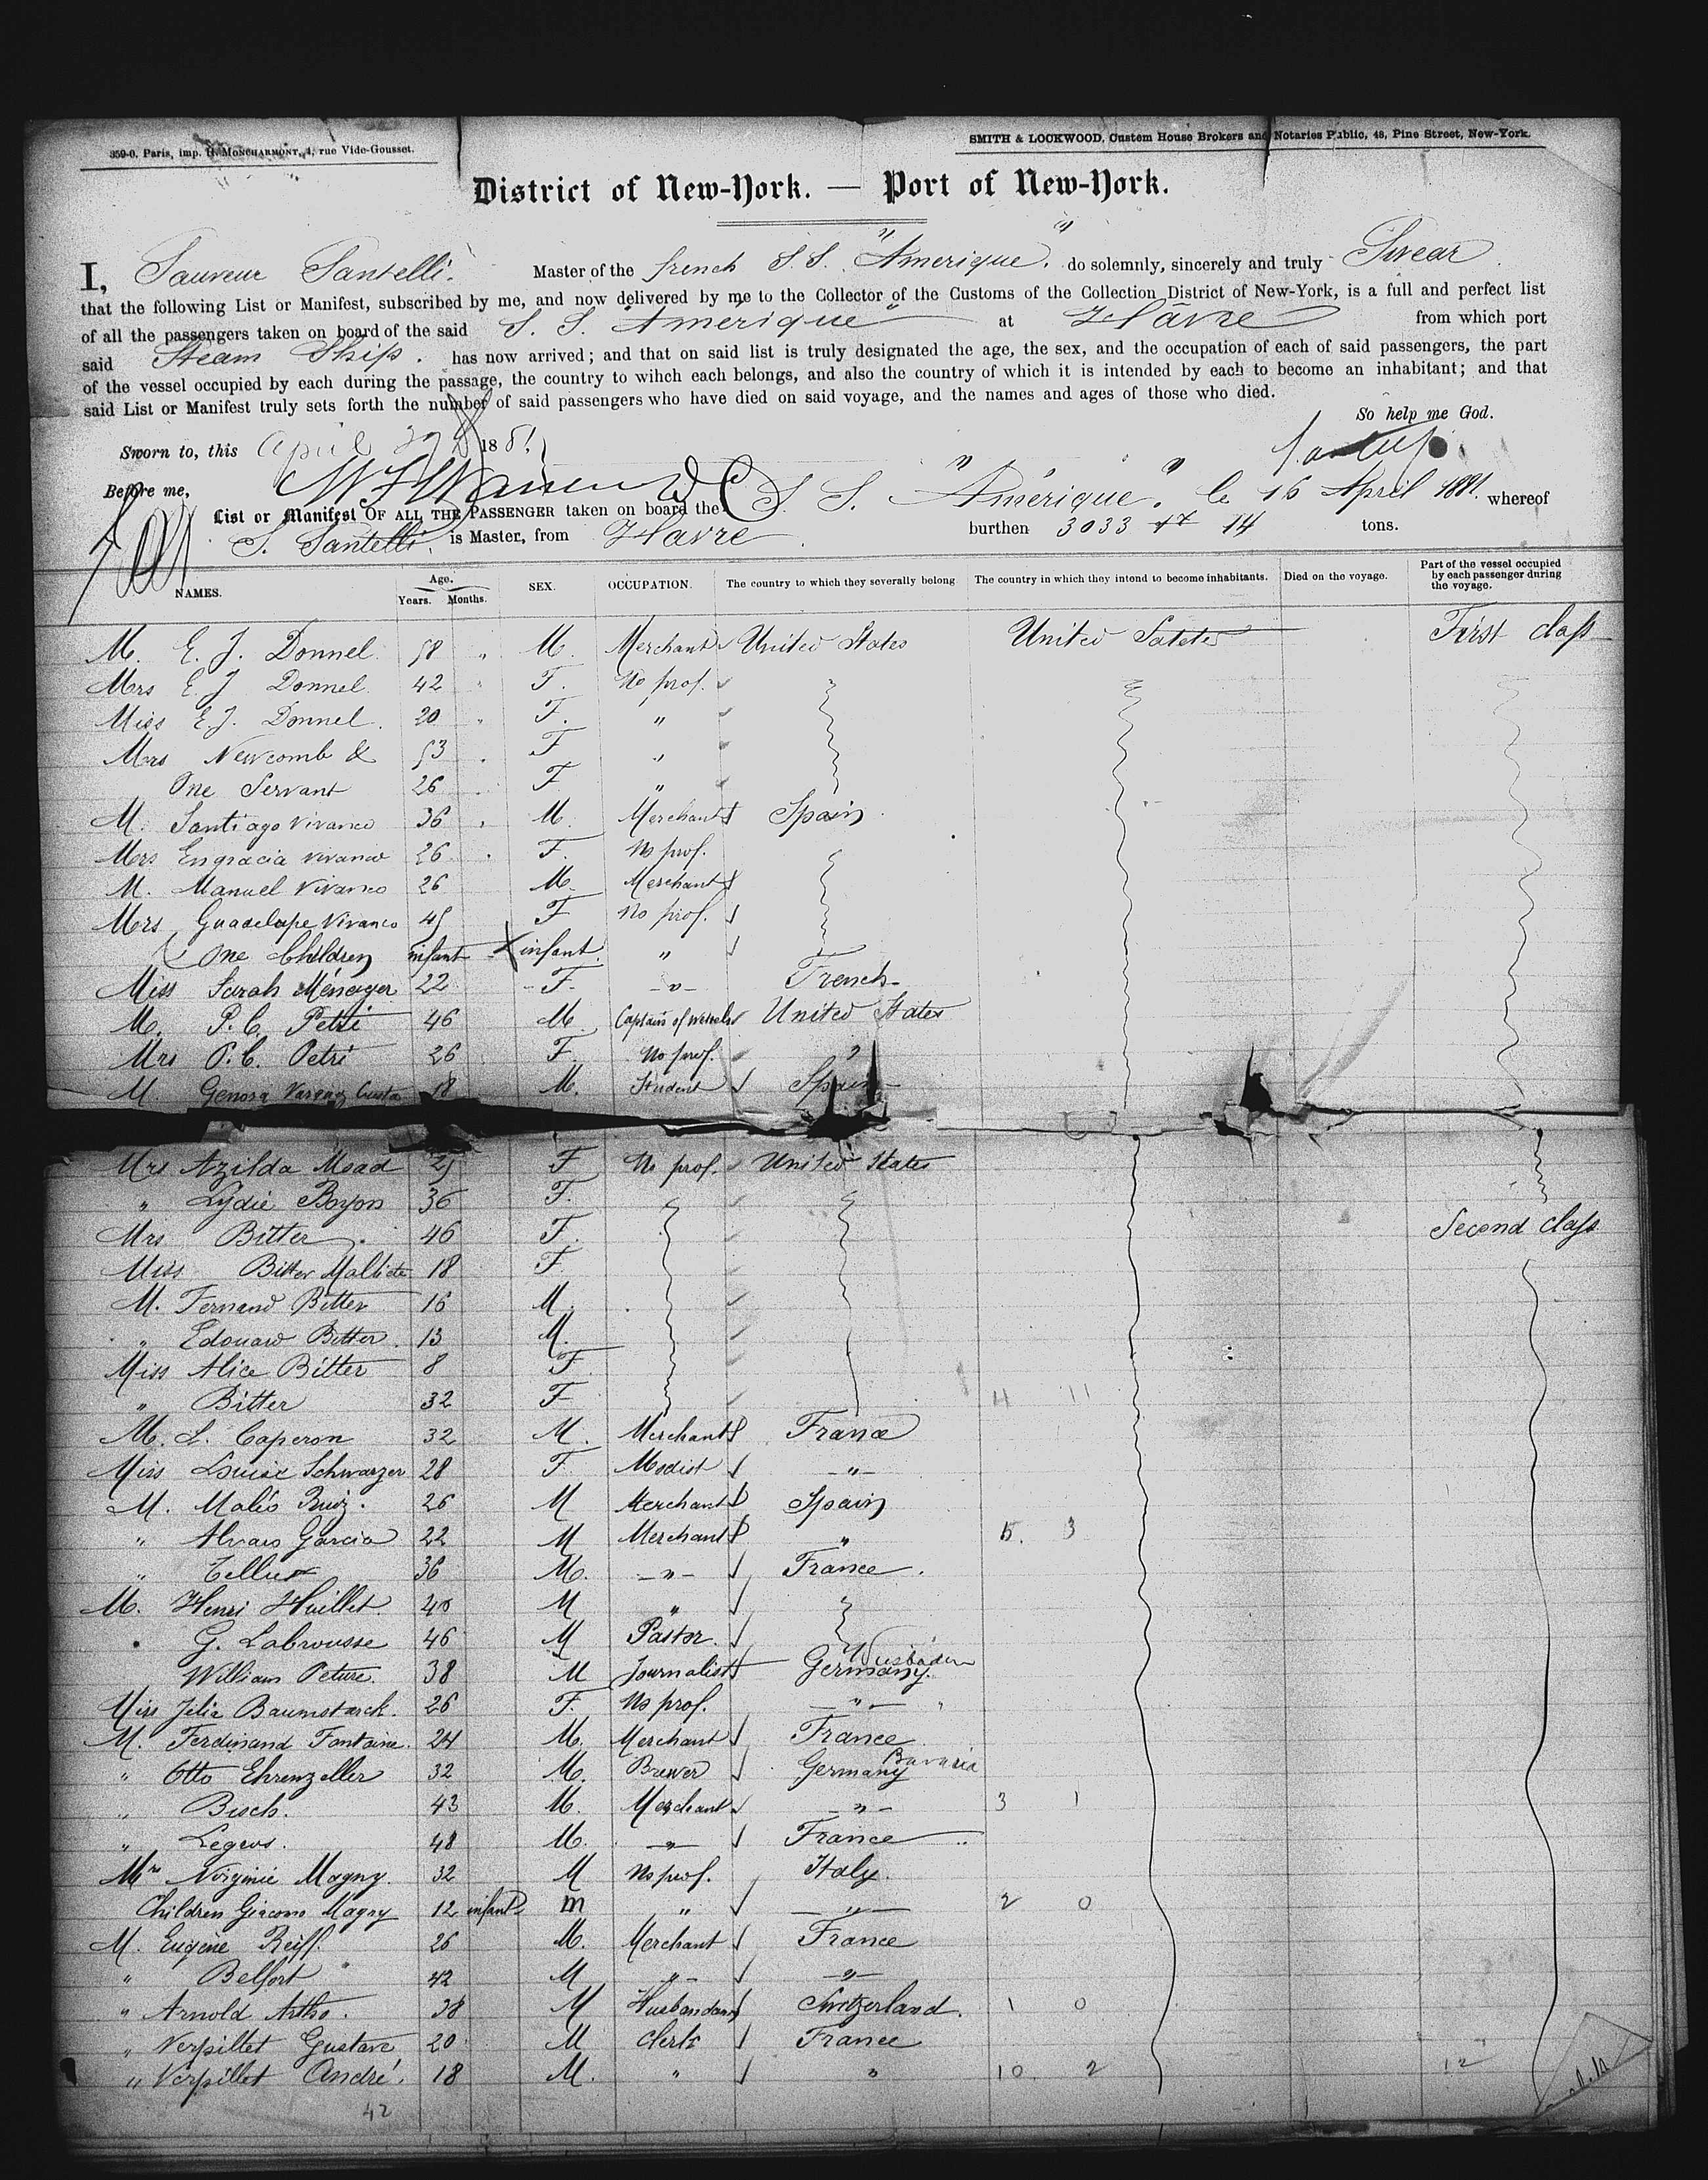 359-0. Paris, imp. H. MONCHARMONT, 4, rue Vide-Gousset.
SMITH & LOCKWOOD, Custom House Brokers and Notaries Public, 48, Pine Street, New-York.
District of New-York. — Port of New-York.
I, Sauveur Santelli. Master of the french S.S. "Amerique". do solemnly, sincerely and truly Swear
that the following List or Manifest, subscribed by me, and now delivered by me to the Collector of the Customs of the Collection District of New-York, is a full and perfect list
of all the passengers taken on board of the said S. S. "Amerique" at Havre from which port
said Steam Ship. has now arrived; and that on said list is truly designated the age, the sex, and the occupation of each of said passengers, the part
of the vessel occupied by each during the passage, the country to wihch each belongs, and also the country of which it is intended by each to become an inhabitant; and that
said List or Manifest truly sets forth the number of said passengers who have died on said voyage, and the names and ages of those who died.
So help me God.
Sworn to, this April 27 1881
Before me,
List or Manifest OF ALL THE PASSENGER taken on board the S. S. "Amérique". le 16 April 1881. whereof
S. Santelli. is Master, from Havre burthen 3033 14 tons.
NAMES. Age. Years. Months. SEX. OCCUPATION. The country to which they severally belong The country in which they intend to become inhabitants. Died on the voyage. Part of the vessel occupied by each passenger during the voyage.
M. E. J. Donnel 58 " M. Merchant United States United Satetes First class
Mrs E. J Donnel 42 " F. No prof.
Miss E. J. Donnel. 20 " F. "
Mrs Newcomb & 53 F "
One Servant 26 F "
M. Santiago Vivanco 36 M. Merchant Spain
Mrs Engracia Vivanco 26 F. No prof.
M. Manuel Vivanco 26 M. Merchant
Mrs Guadelupe Vivanco 45 F No prof.
One Children infant infant. "
Miss Sarah Ménager 22 F -"- French
M. P. C. Petri 46 M. Captain of Wessels United States
Mrs P. C. Petri 26 F. No prof. "
M. Genosa Vargas 18 M. Student Spain
Mrs Azilda Moad 25 F No prof. United States
" Lydie Boyon 36 F.
Mrs Bitter. 46 F. Second class
Miss Bitter 18 F
M. Fernand Bitter 16 M.
" Edouard Bitter. 13 M.
Miss Alice Bitter 8 F
" Bitter 32 F 4 11
M. L. Caperon 32 M. Merchant France
Miss Louise Schwarzer 28 F. Modist -"-
M. Malio Ruiz. 26 M Merchant Spain
" Alvaro Garcia 22 M Merchant " 5. 3
" 36 M. -"- France.
M. Henri Huillet. 40 M "
G. Labrousse 46 M Pastor.
William Peture. 38 M Journalist Germany. Wiesbaden
Miss Jélia Baumstarck. 26 F. No prof. -"-
M. Ferdinand Fontaine. 24 M. Merchant France
" Otto Ehrenzeller 32 M. Brewer Germany Bavaria
" Bisch. 43 M. Merchant -"- 3 1
" Legros. 48 M. -"- France
Mrs Virginie Magny. 32 M No prof. Italy.
Children Giacomo Magny 12 infant m " -"- 2 0
M. Eugène Reiff. 26 M. Merchant France
" Belfort 42 M -"- -"-
" Arnold Artho. 38 M Husbandman Switzerland. 1 0
" Verpillet Gustave 20 M Clerk France
" Verpillet André. 18 M. " " 10. 2 12
42